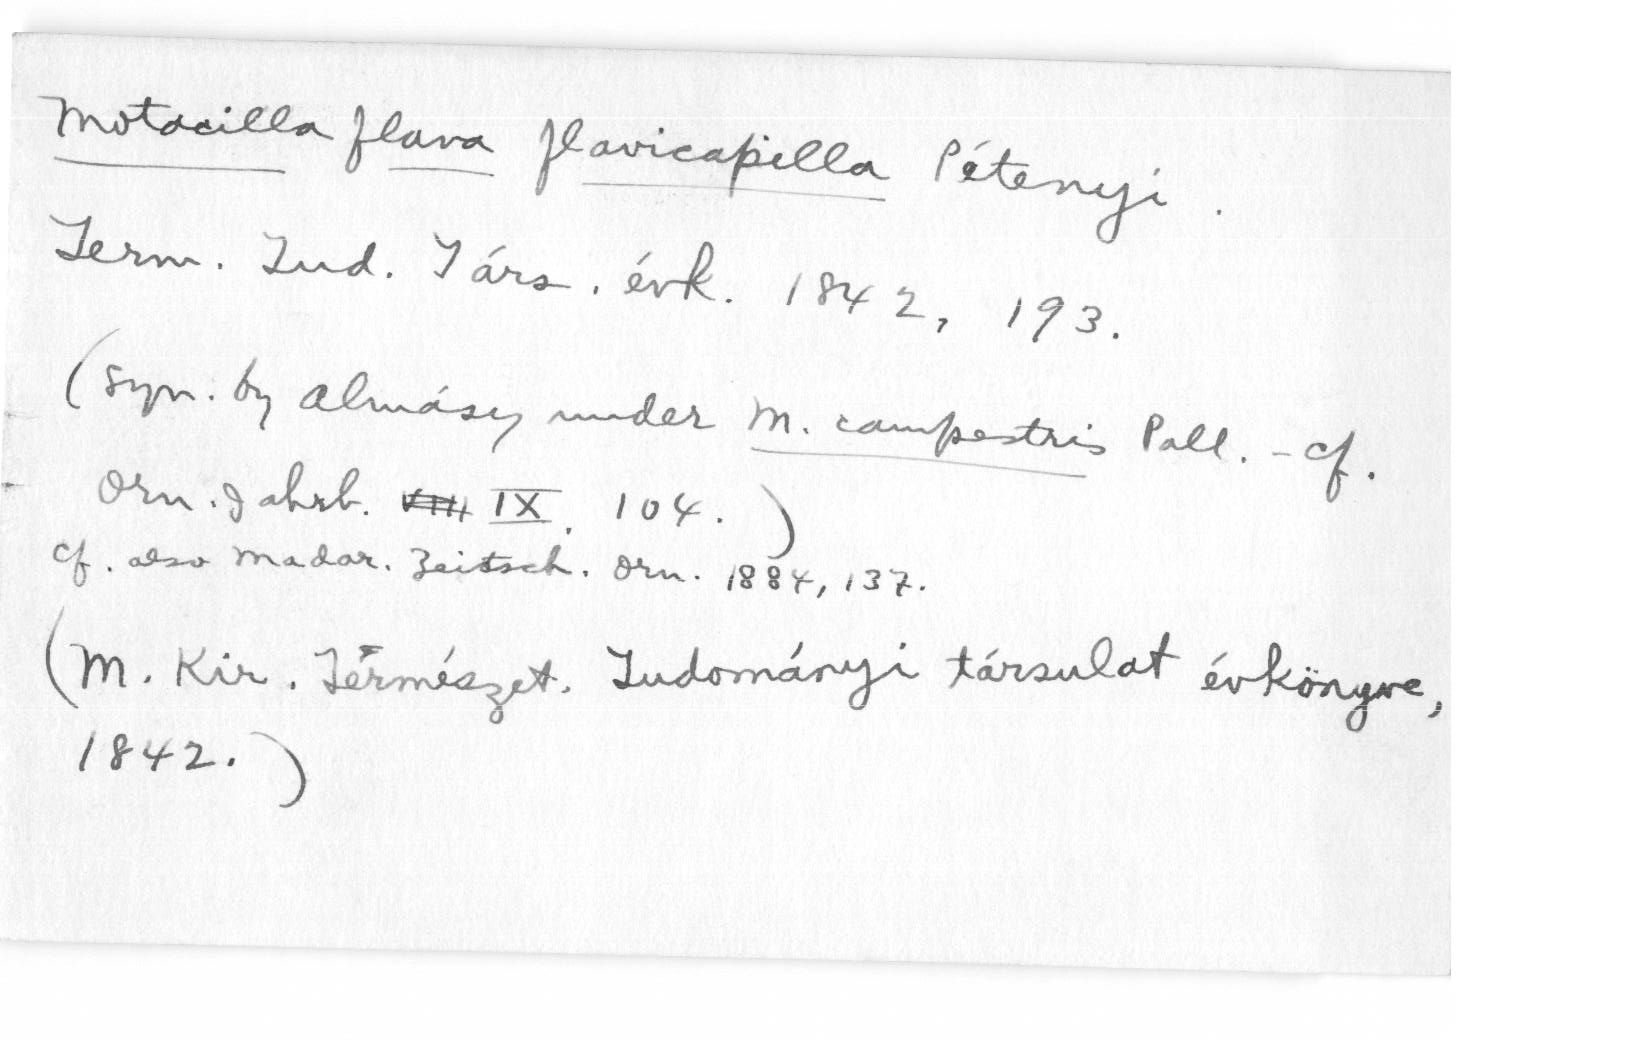 Motacilla flava flavicapilla Pétenyi.
Term. Tud. Társ. évk. 1842, 193.
(Syn. by Almásy under M. campestris Pall. - cf.
Orn. Jahrb. VIII IX, 104.)
cf. also Madar. Zeitsch. Orn. 1884, 137.
(M. Kir. Természet. Tudományi társulat évkönyve,
1842.)